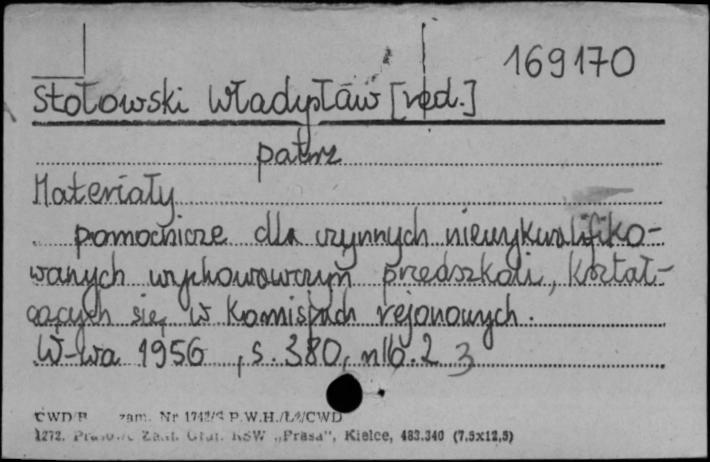 169170
Stołowski Władysław [red.]
patrz
Materiały
pomocnicze dla czynnych niewykwalifiko-
wanych wychowawczyń przedszkoli, kształ-
cących się w Komisjach rejonowych.
W-wa 1956, s. 380, nlb. 2 3
CWD/B zam. Nr P.W.H./Ł/CWD
1272. Zakł. Graf. RSW „Prasa", Kielce, 483.340 (7,5x12,5)